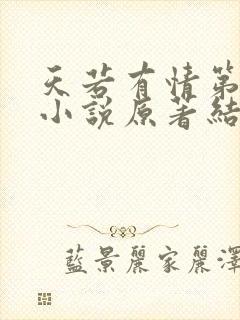 天若有情第
小説原著結
藍景麗家麗澤